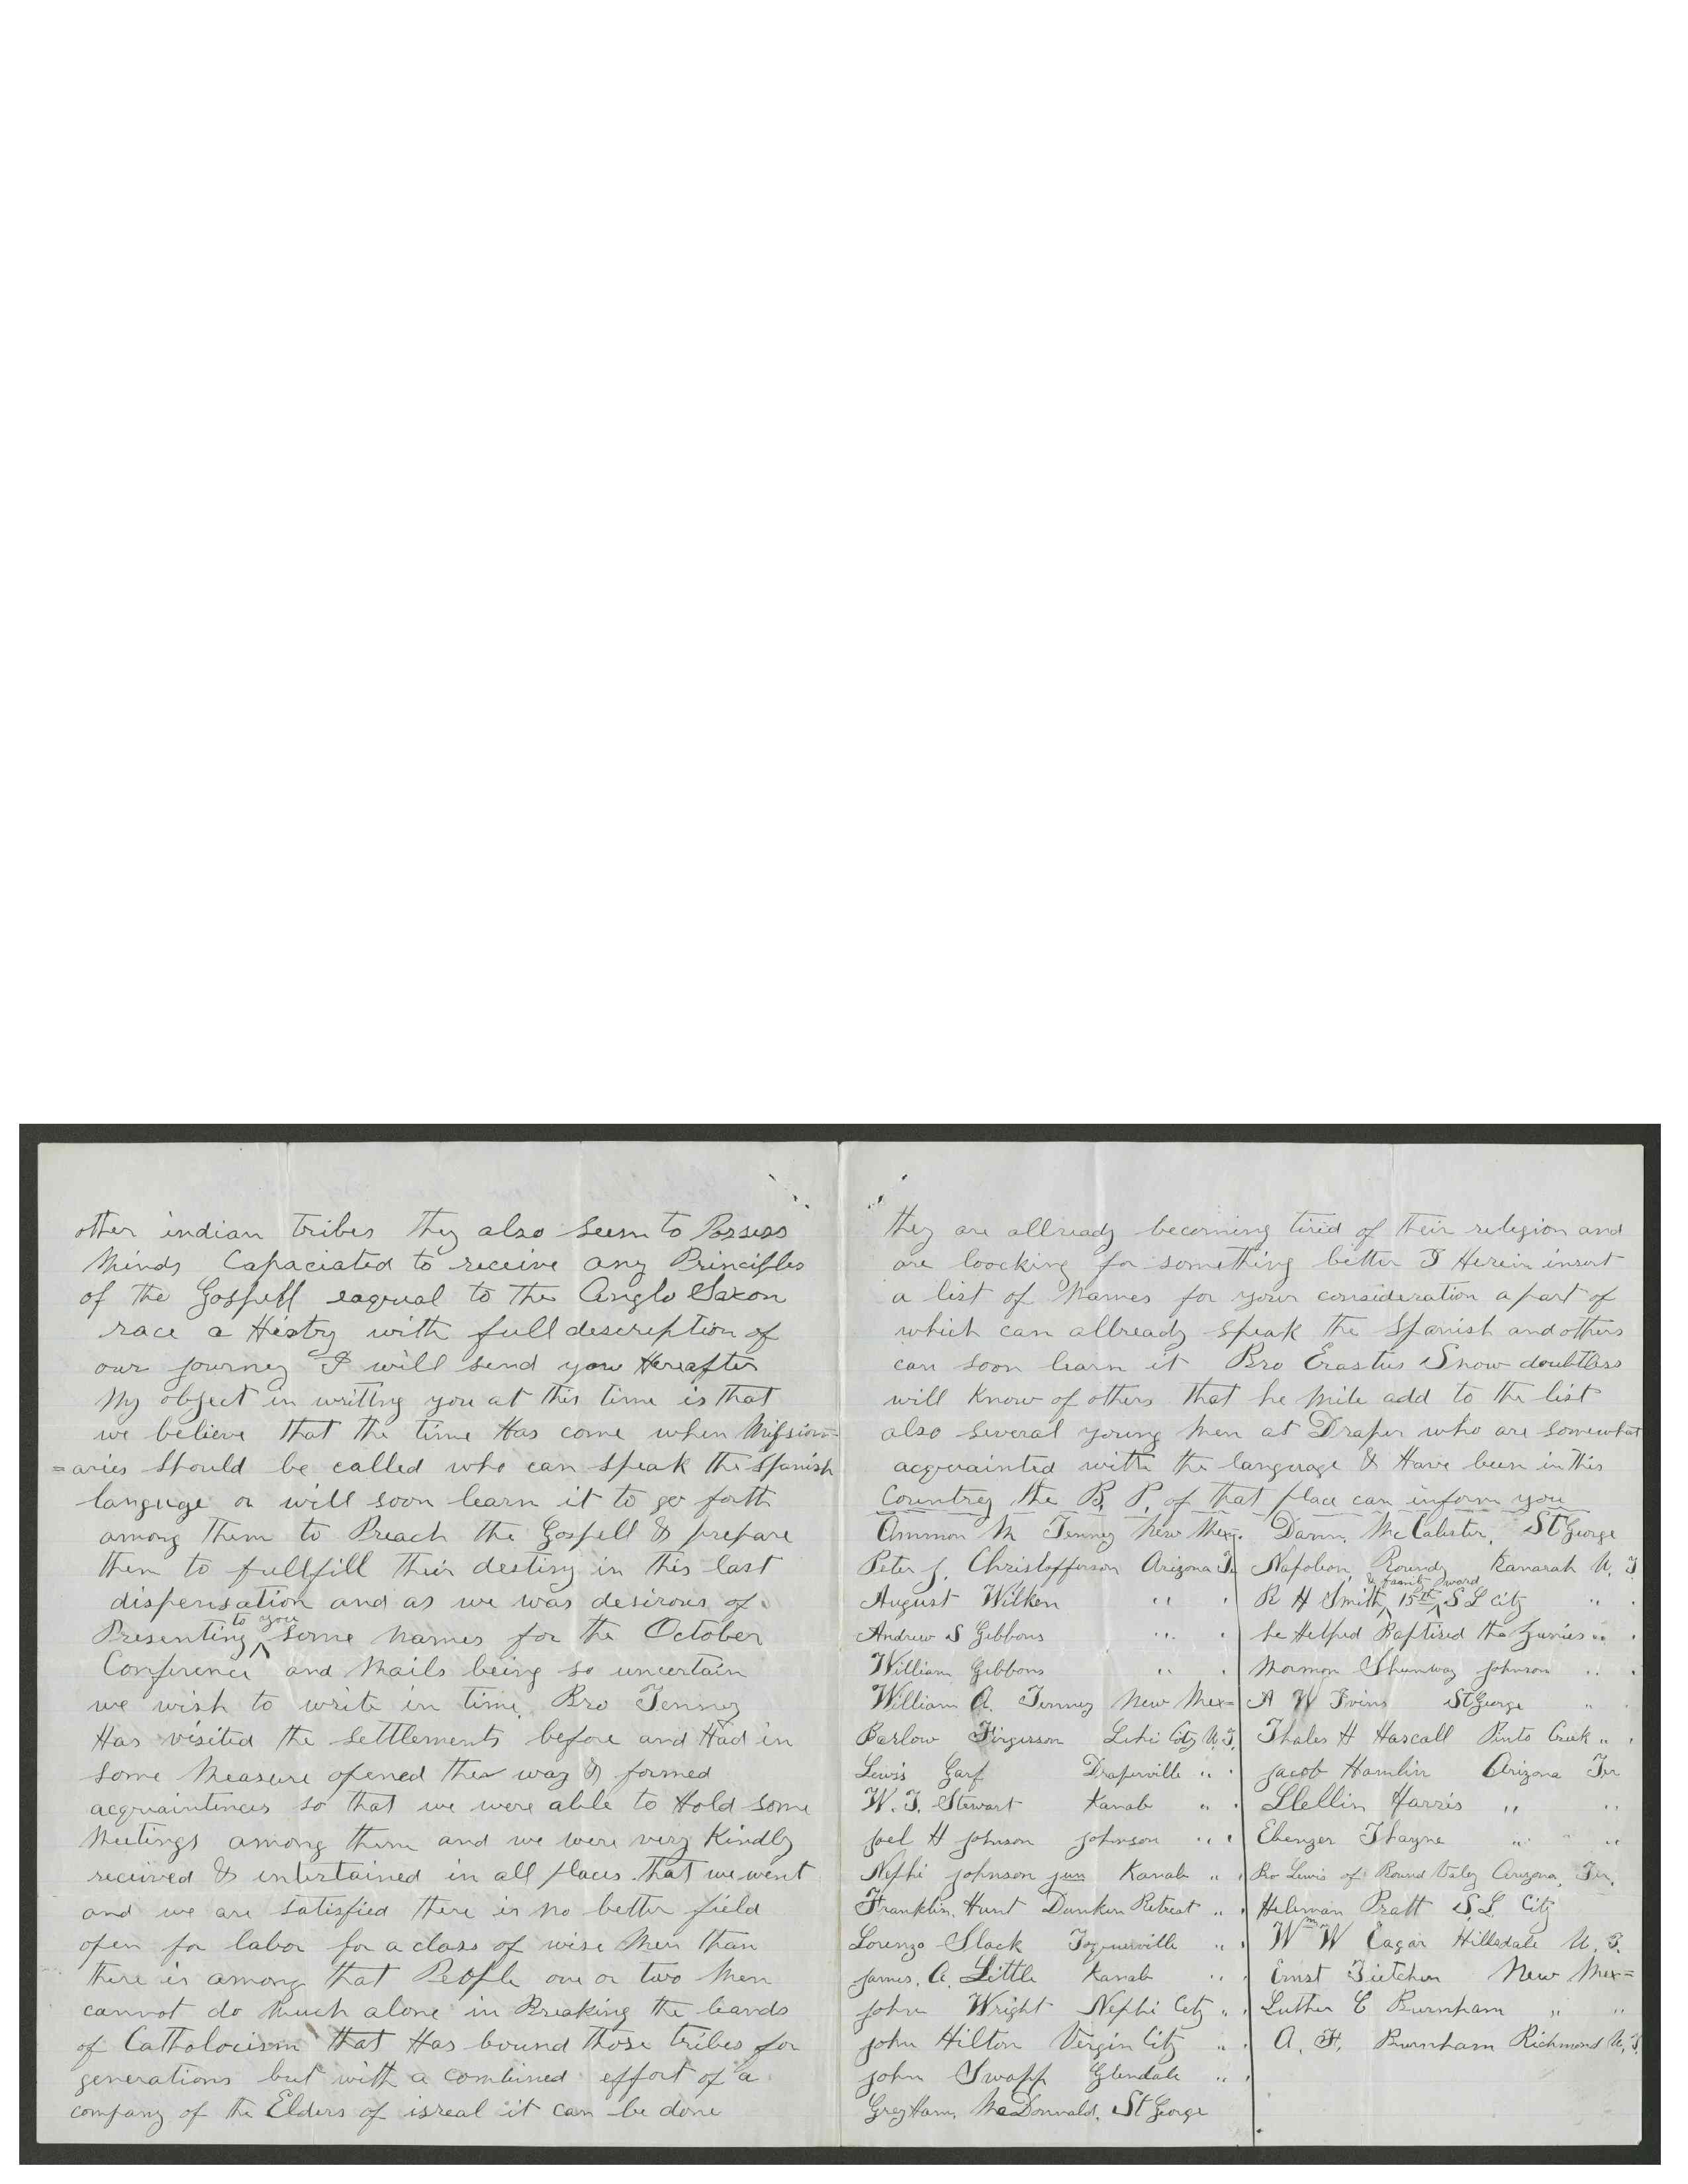 other indian tribes they also seem to Possess
Minds Capaciated to receive any Principles
of the Gospell eaqual to the Anglo Saxon
race a Histry with full description of
our journey I will send you Hereafter
My object in writtng you at this time is that
we believe that the time Has come when Mission=
=aries should be called who can speak the Spanish
languge or will soon learn it to go forth
among them to Preach the Gospell & prepare
them to fullfill their destiny in this last
dispensation and as we was desirous of
Presenting to you some names for the October
Conference and Mails being so uncertain
we wish to write in time, Bro Tenney
Has visited the settlements before and Had in
some Measure opened the way & formed
acquaintences so that we were able to Hold some
Meetings among them and we were very Kindly
received & intertained in all places that we went
and we are satisfied there is no better field
open for labor for a class of wise Men than
there is among that People one or two Men
cannot do Much alone in Breaking the bands
of Cattholocism that Has bound those tribes for
generations but with a combined effort of a
company of the Elders of isreal it can be done
they are allready becoming tired of their religion and
are loocking for something better I Herein insert
a list of Names for your consideration a part of
which can allready speak the Spanish and others
can soon learn it Bro Erastus Snow doubtless
will Know of others that he Mite add to the list
also several young Men at Draper who are somewhat
acquainted with the language & Have been in this
Country the B, P, of that place can inform you
Ammon M Tenney New Mex.
Peter J. Christofferson Arizona T.
August Wilken " "
Andrew S Gibbons " "
William Gibbons " "
William A. Tenney New Mex=
Barlow Firgusson Lehi City U.T.
Lewis Garf Draperville " "
W. T. Stewart Kanab " "
Joel H Johnson Johnson " "
Nephi Johnson jun Kanab " "
Franklin, Hunt Dunken Retreat " "
Lorenzo Slack Toquerville " "
James, A, Little Kanab " "
John Wright Nephi City " "
John Hilton Vergin City " "
John Swapp Glendale " "
GreyHam, McDonnald, St George
Darnn, McCalister, St George
Napoleon, Roundy Kanarah U, T
R H Smith & family 15th ward S L City " "
he Helped Baptised the Zunies " "
Mormon Shumway Johnson " "
A W Ivins St George " "
Thales H Hascall Pinto Creek " "
Jacob Hamlin Arizona Ter
Llellin Harris " "
Ebenzer Thayne " " "
Bro Lewis of Round Valey Arizona, Ter,
Heleman Pratt S.L. City
Wm W Eagar Hillsdale U. T.
Ernst Tietchen New Mex=
Luther C Burnham " "
A. F. Burnham Richmond U, T,